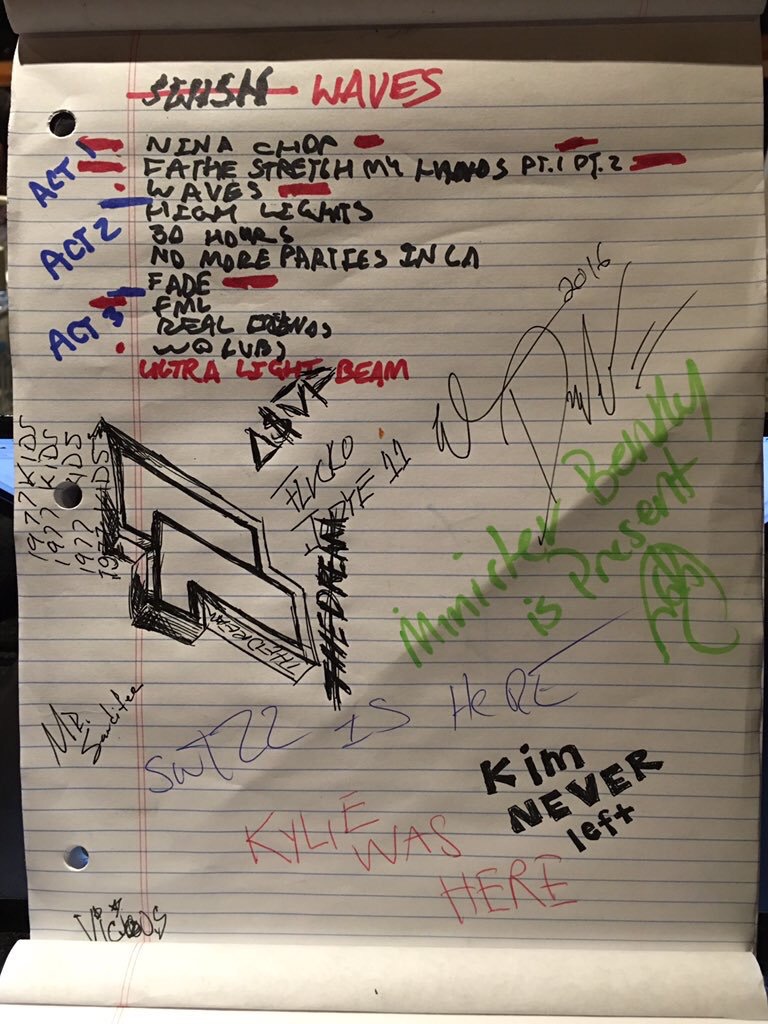 SWISH WAVES
ACT 1
NINA CHOP
FATHE STRETCH MY HANDS PT.1 PT.2
WAVES
ACT 2
HIGH LIGHTS
30 HOURS
NO MORE PARTIES IN LA
ACT 3
FADE
FML
REAL FRIENDS
WOLVES
ULTRA LIGHT BEAM
2016
A$AP
FLACKO
JOYE 11
THE DREAM
THE DREAM
1977 KIDS
1977 KIDS
1977 KIDS
1977 KIDS
Minister Bently
is Present
SWIZZ IS HERE
MR.
Kim
NEVER
left
KYLIE
WAS
HERE